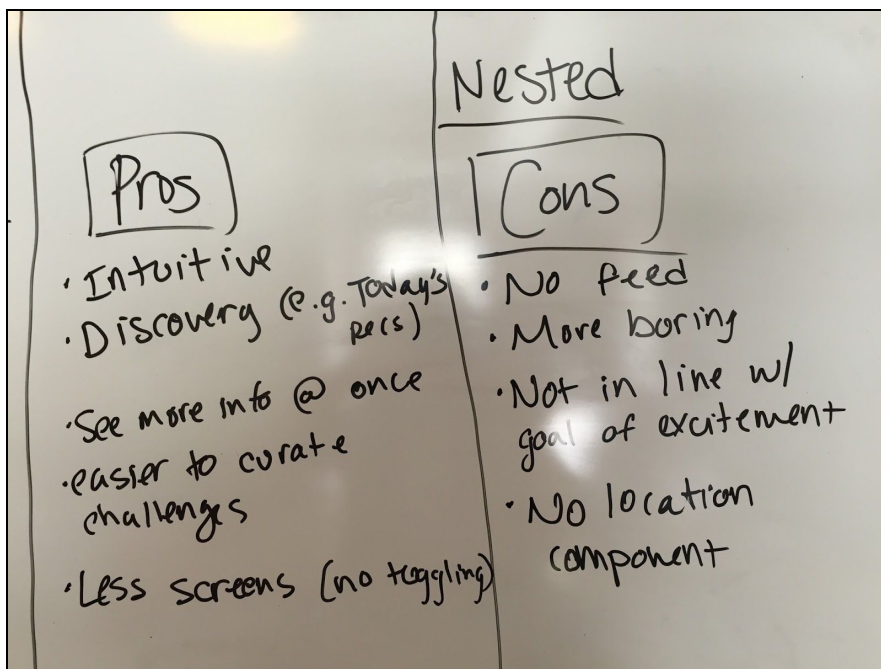 Nested
Pros
· Intuitive
· Discovery (e.g. Today's
recs)
· See more info @ once
· easier to curate
challenges
· Less screens (no toggling)
Cons
· No feed
· More boring
· Not in line w/
goal of excitement
· No location
component